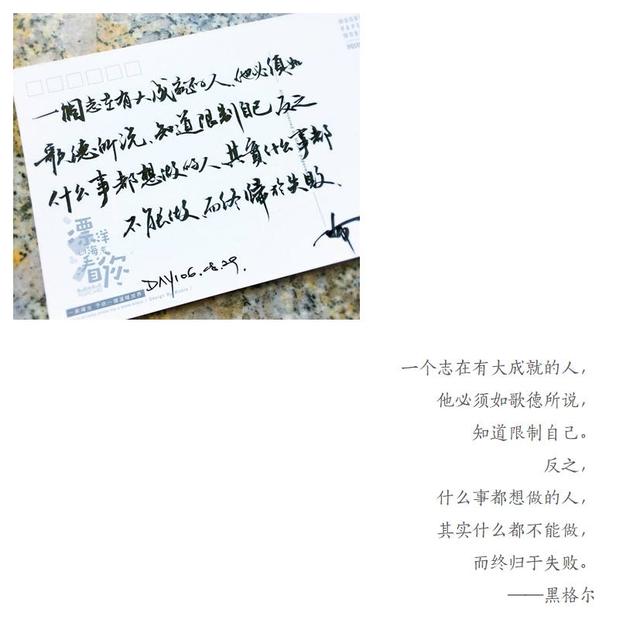 一個志在有大成就的人，他必須如
歌德所说，知道限制自己，反之
什么事都想做的人，其實什么事都
不能做，而终歸於失敗。
漂洋
过海来
看你
DAY106.08.29.
一个志在有大成就的人，
他必须如歌德所说，
知道限制自己。
反之，
什么事都想做的人，
其实什么都不能做，
而终归于失败。
——黑格尔